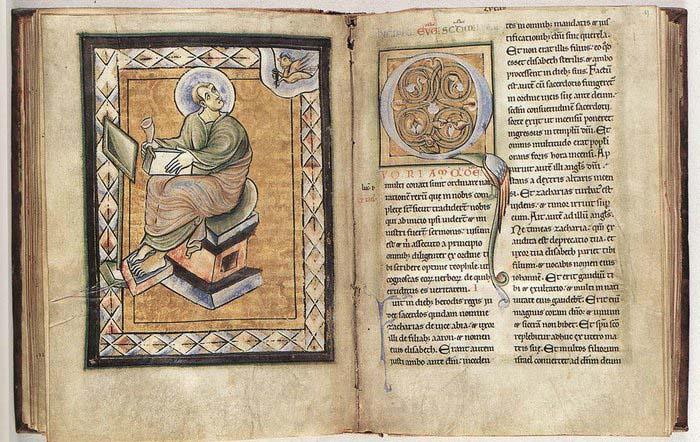 UONIAM QDE
multi conati sunt ordinare nar
rationem rerū que in nobis com
plete st̄ sicut tradiderunt nobis
qui ab inicio ipsi viderunt & mi
nistri fuerunt sermonis uisum
est & m̄ assecuto a principio
omnib; diligenter ex ordine ti
bi scribere optime teophile ut
cognoscas eorū verborū de quib;
eruditus es ueritatem.
uit in dieb; herodis regis iu
dee sacerdos quidam nomine
zacharias de uice abia & uxor
illi de filiab; aaron & nomen
eius elisabeth. Erant autem
iusti ambo ante dm̄ inceden
tes in omnib; mandatis & ius
tificationib; dn̄i sine querela.
Et non erat illis filius eo qd̄
esset elisabeth sterilis & ambo
processissent in dieb; suis. Factū
est autē cū sacerdotio fungeret̄
in ordine uicis sue ante deum
scdm̄ consuetudinem sacerdotii
sorte exiit ut incensū poneret
ingressus in templū dn̄i. Et
omnis multitudo erat populi
orans foris hora incensi. Appa
ruit autē illi angls̄ dn̄i
stans a dextris altaris incen
si. Et zacharias turbat̄ est
uidens & timor irruit sup
eum. Ait autē ad illū angls̄
Ne timeas zacharia; qm̄ ex
audita est deprecatio tua. et
uxor tua elisabeth pariet tibi
filium & uocabis nomen eius
iohannem. Et erit gaudiū ti
bi & exultatio. & multi in nati
uitate eius gaudebt̄. Et erit
magnus corā dn̄o. & uinum
& sicerā non bibet. Et spū sc̄o
replebitur adhuc ex utero ma
tris sue. Et multos filiorum
israel conuertet ad dn̄m deum